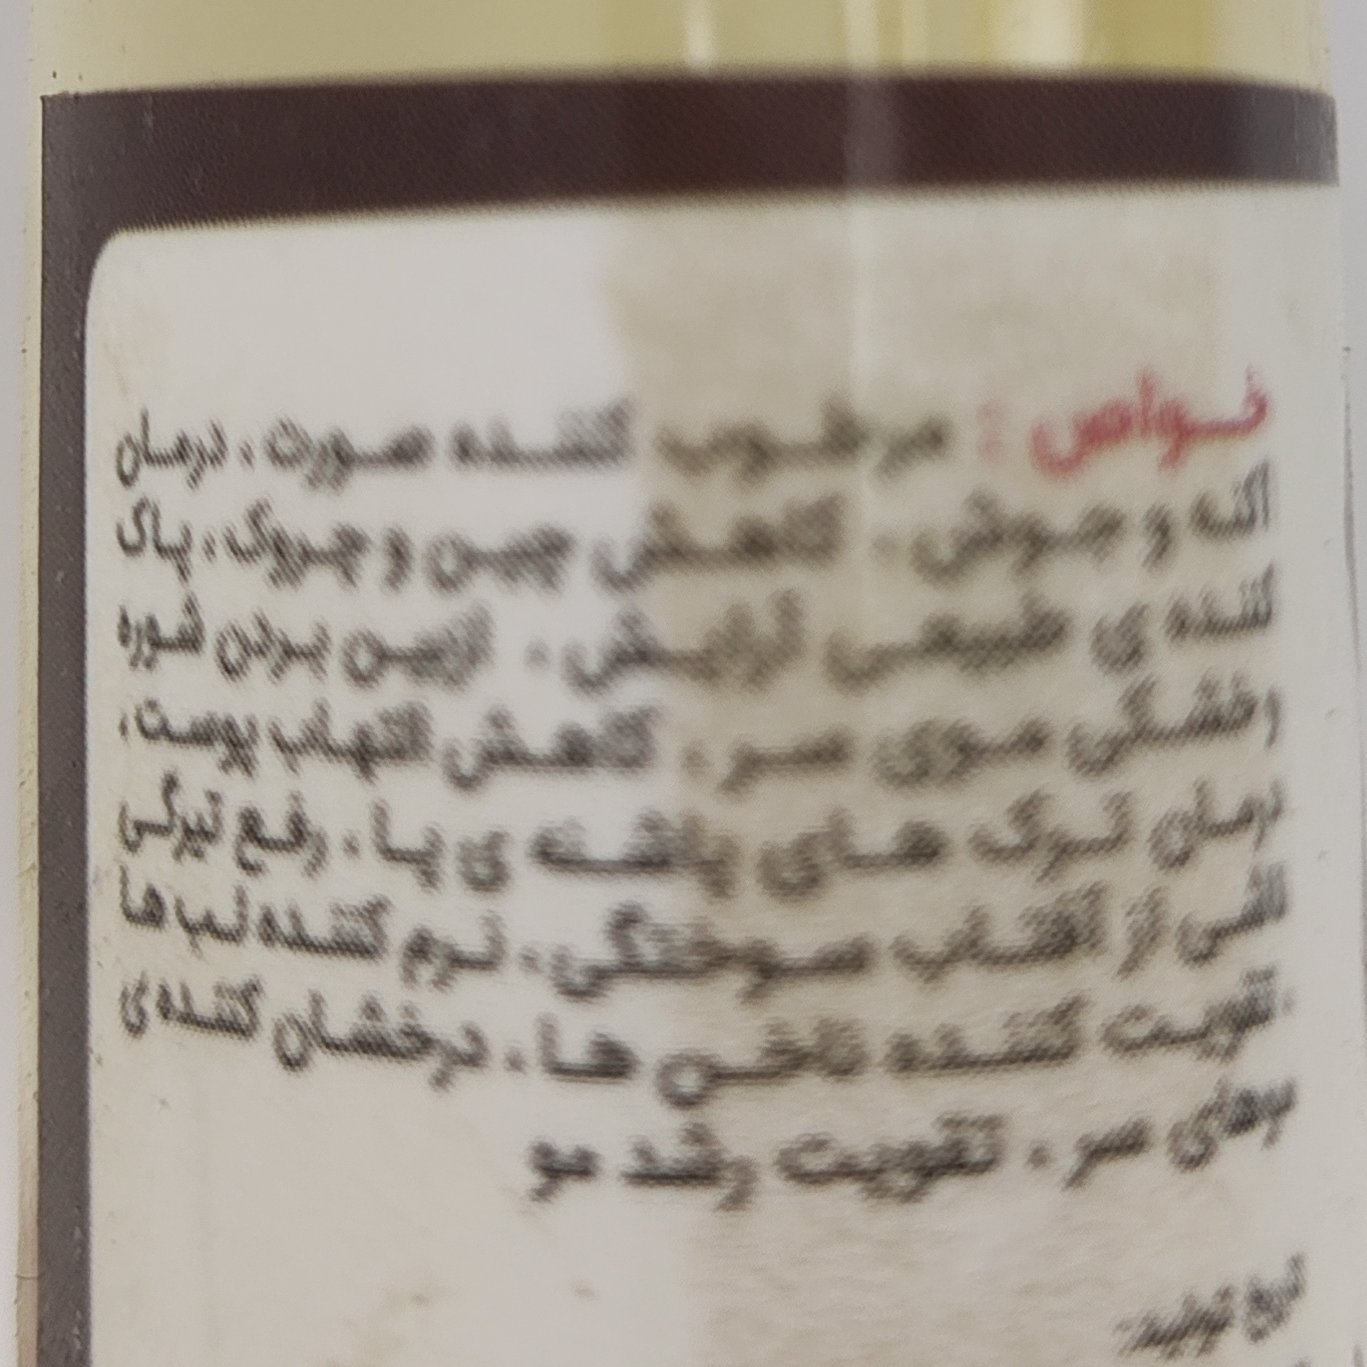 خواص : مرطوب کننده صورت ، درمان
اکنه و جوش ، کاهش چین و چروک ، پاک
کننده ی طبیعی آرایش ، ازبین بردن شوره
و خشکی موی سر ، کاهش التهاب پوست ،
درمان ترک های پاشنه ی پا ، رفع تیرگی
ناشی از آفتاب سوختگی ، نرم کننده لب ها
، تقویت کننده ناخن ها ، درخشان کننده ی
موهای سر ، تقویت رشد مو
تاریخ تولید: